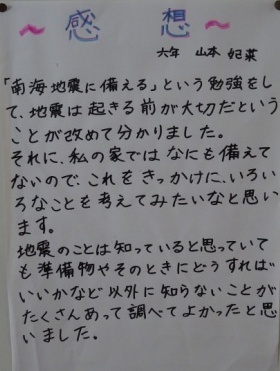 ~ 感想 ~
六年 山本 妃菜
「南海地震に備える」という勉強をし
て、地震は起きる前が大切だという
ことが改めて分かりました。
それに、私の家では なにも備えて
ないので、これをきっかけに、いろい
ろなことを考えてみたいなと思い
ます。
地震のことは知っていると思っていて
も準備物やそのときにどうすれば
いいかなど以外に知らないことが
たくさんあって調べてよかったと思
いました。